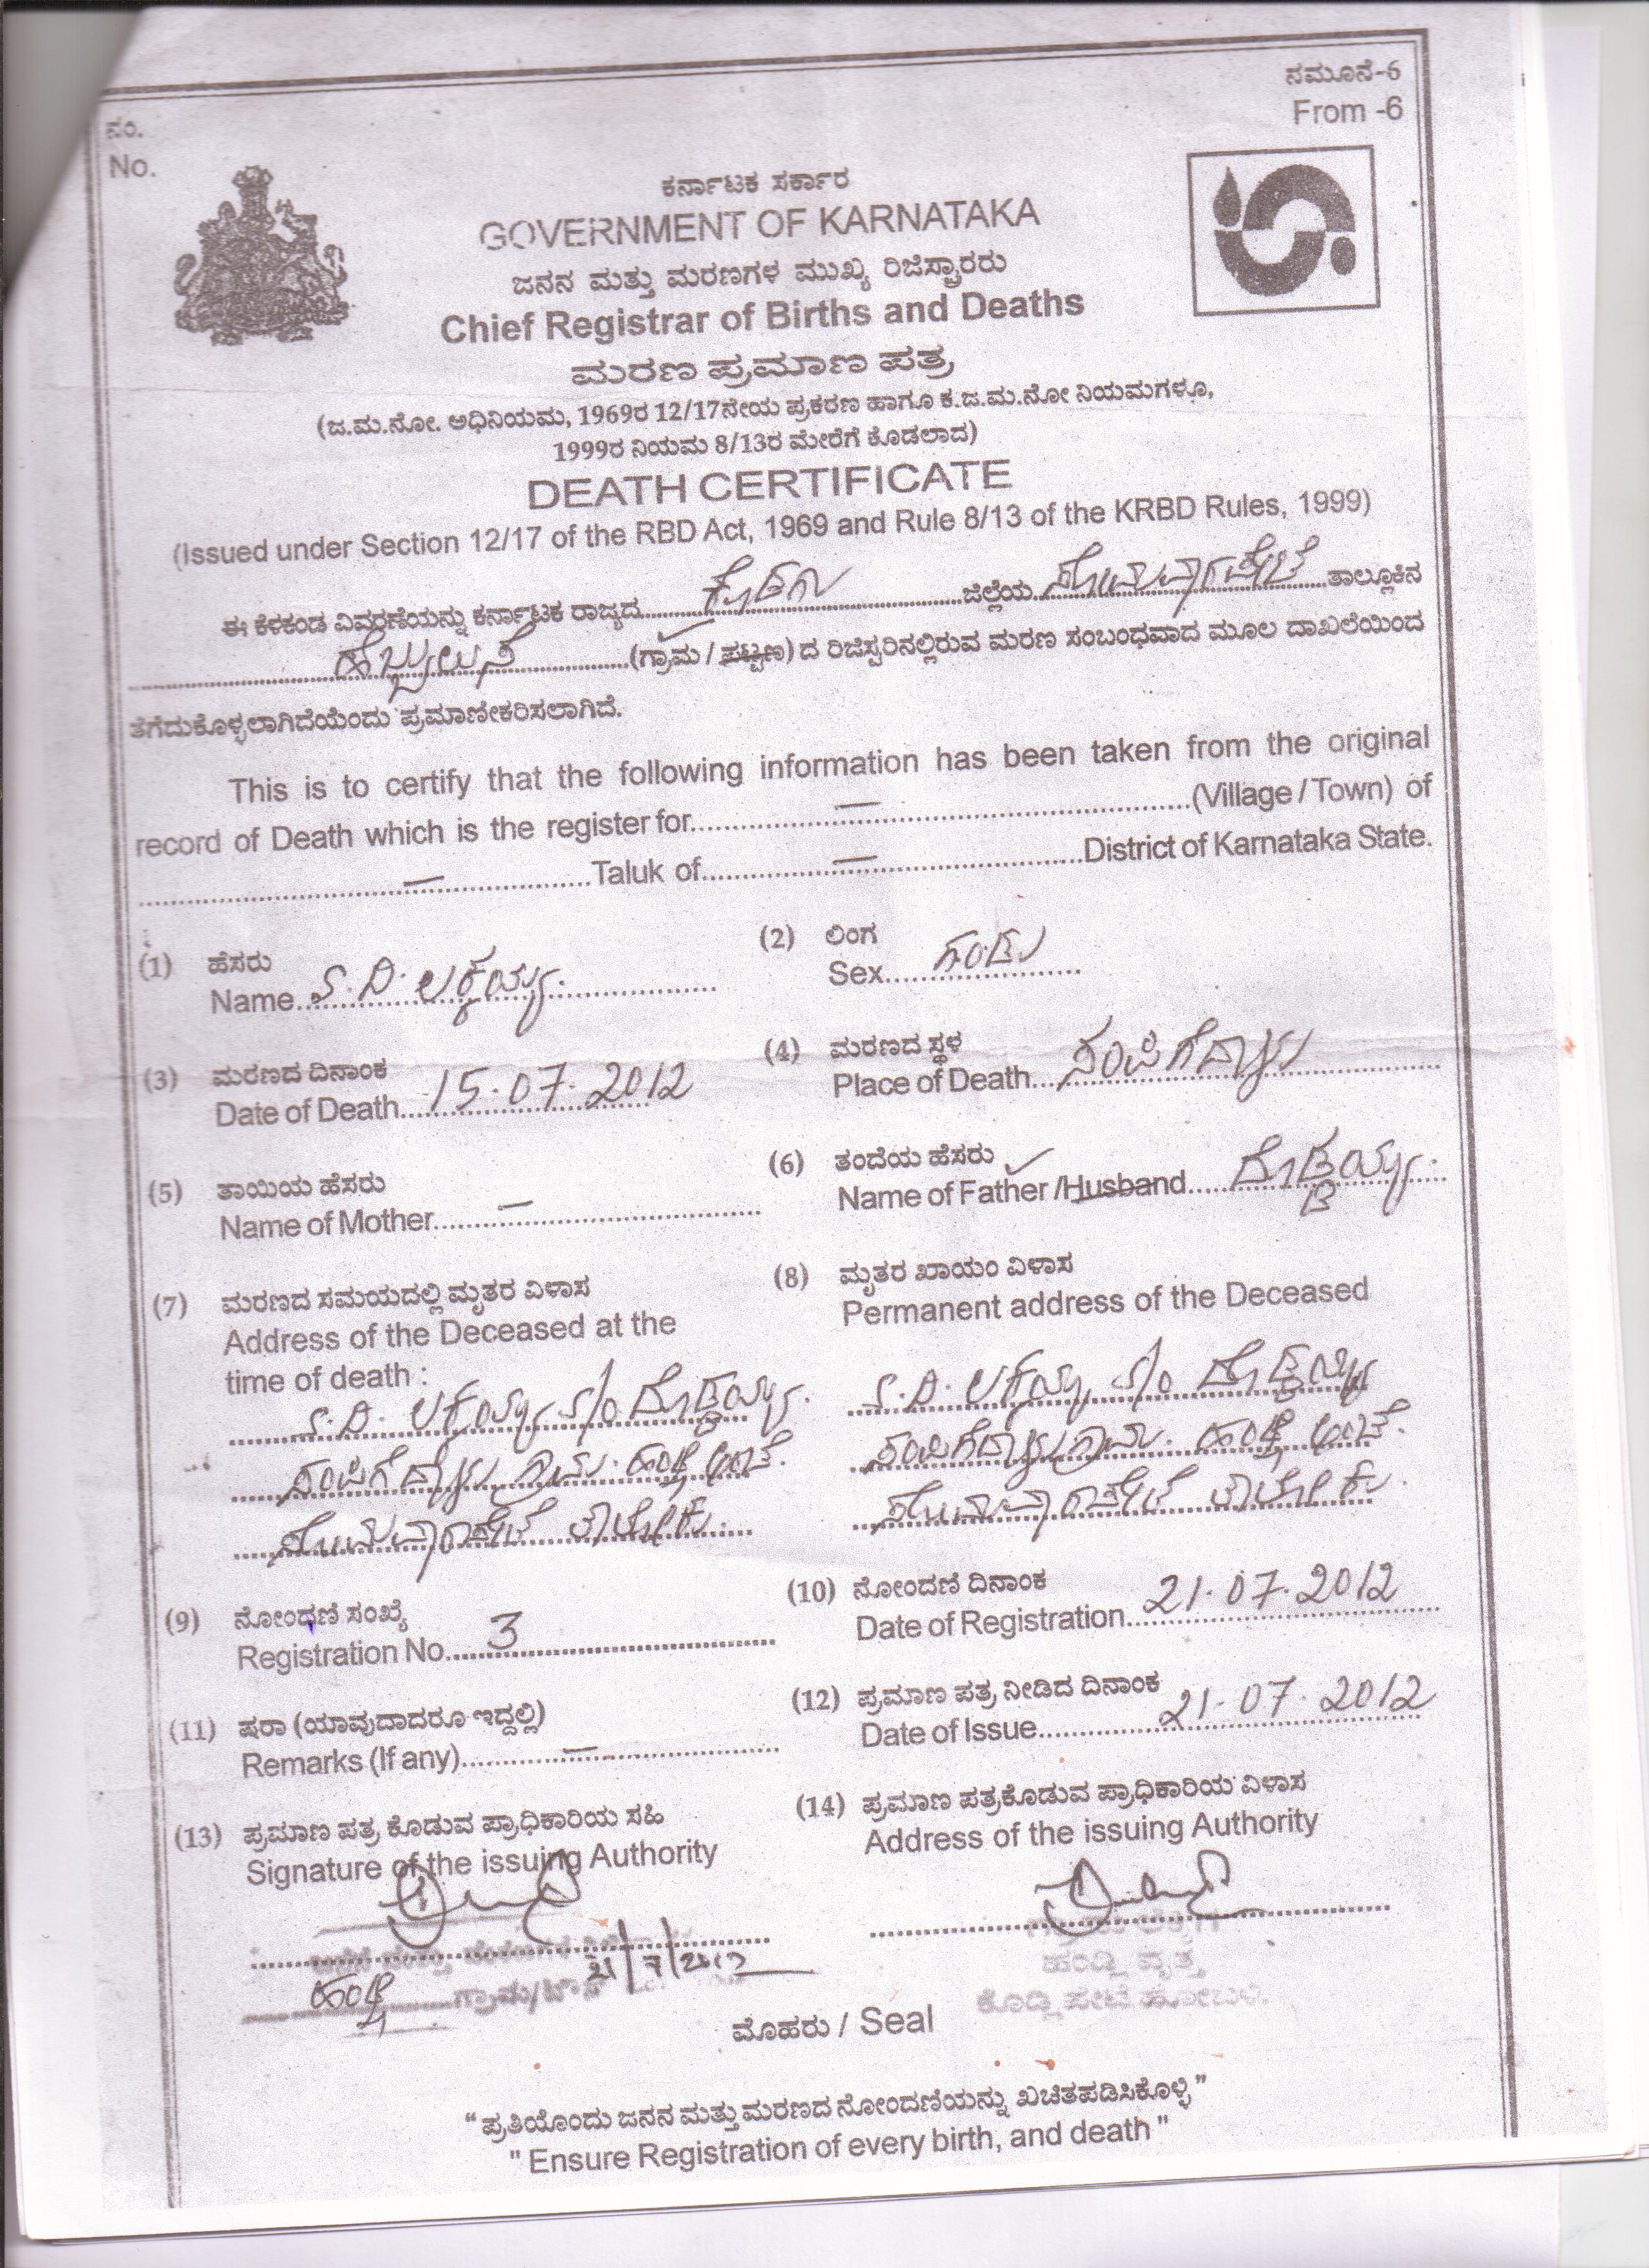 ನಮೂನೆ-6
From -6
ನಂ.
No.
ಕರ್ನಾಟಕ ಸರ್ಕಾರ
GOVERNMENT OF KARNATAKA
ಜನನ ಮತ್ತು ಮರಣಗಳ ಮುಖ್ಯ ರಿಜಿಸ್ಟ್ರಾರರು
Chief Registrar of Births and Deaths
ಮರಣ ಪ್ರಮಾಣ ಪತ್ರ
(ಜ.ಮ.ನೋ. ಅಧಿನಿಯಮ, 1969ರ 12/17ನೇಯ ಪ್ರಕರಣ ಹಾಗೂ ಕ.ಜ.ಮ.ನೋ ನಿಯಮಗಳೂ,
1999ರ ನಿಯಮ 8/13ರ ಮೇರೆಗೆ ಕೊಡಲಾದ)
DEATH CERTIFICATE
(Issued under Section 12/17 of the RBD Act, 1969 and Rule 8/13 of the KRBD Rules, 1999)
ಈ ಕೆಳಕಂಡ ವಿವರಣೆಯನ್ನು ಕರ್ನಾಟಕ ರಾಜ್ಯದ ಕೊಡಗು ಜಿಲ್ಲೆಯ ಸೋಮವಾರಪೇಟೆ ತಾಲ್ಲೂಕಿನ
(ಗ್ರಾಮ / ಪಟ್ಟಣ) ದ ರಿಜಿಸ್ಟರಿನಲ್ಲಿರುವ ಮರಣ ಸಂಬಂಧವಾದ ಮೂಲ ದಾಖಲೆಯಿಂದ
ತೆಗೆದುಕೊಳ್ಳಲಾಗಿದೆಯೆಂದು ಪ್ರಮಾಣೀಕರಿಸಲಾಗಿದೆ.
This is to certify that the following information has been taken from the original
record of Death which is the register for — (Village / Town) of
— Taluk of — District of Karnataka State.
(1) ಹೆಸರು
Name S.D. ಲಕ್ಕಯ್ಯ.
(2) ಲಿಂಗ
Sex ಗಂಡು
(3) ಮರಣದ ದಿನಾಂಕ
Date of Death 15.07.2012
(4) ಮರಣದ ಸ್ಥಳ
Place of Death ಸಂಪಿಗೆದಾಳು
(5) ತಾಯಿಯ ಹೆಸರು
Name of Mother —
(6) ತಂದೆಯ ಹೆಸರು
Name of Father / Husband ದೊಡ್ಡಯ್ಯ.
(7) ಮರಣದ ಸಮಯದಲ್ಲಿ ಮೃತರ ವಿಳಾಸ
Address of the Deceased at the
time of death :
S.D. ಲಕ್ಕಯ್ಯ S/o ದೊಡ್ಡಯ್ಯ.
ಸಂಪಿಗೆದಾಳು ಗ್ರಾಮ. ಹಂಡ್ಲಿ ಅಂಚೆ.
ಸೋಮವಾರಪೇಟೆ ತಾಲೋಕು.
(8) ಮೃತರ ಖಾಯಂ ವಿಳಾಸ
Permanent address of the Deceased
S.D. ಲಕ್ಕಯ್ಯ S/o ದೊಡ್ಡಯ್ಯ
ಸಂಪಿಗೆದಾಳು ಗ್ರಾಮ. ಹಂಡ್ಲಿ ಅಂಚೆ.
ಸೋಮವಾರಪೇಟೆ ತಾಲೋಕು.
(9) ನೋಂದಣಿ ಸಂಖ್ಯೆ
Registration No. 3
(10) ನೋಂದಣಿ ದಿನಾಂಕ
Date of Registration 21.07.2012
(11) ಷರಾ (ಯಾವುದಾದರೂ ಇದ್ದಲ್ಲಿ)
Remarks (If any) —
(12) ಪ್ರಮಾಣ ಪತ್ರ ನೀಡಿದ ದಿನಾಂಕ
Date of Issue 21.07.2012
(13) ಪ್ರಮಾಣ ಪತ್ರ ಕೊಡುವ ಪ್ರಾಧಿಕಾರಿಯ ಸಹಿ
Signature of the issuing Authority
(14) ಪ್ರಮಾಣ ಪತ್ರಕೊಡುವ ಪ್ರಾಧಿಕಾರಿಯ ವಿಳಾಸ
Address of the issuing Authority
21/7/2012
ಹಂಡ್ಲಿ ಗ್ರಾಮ/ಟೌನ್
ಹಂಡ್ಲಿ ವೃತ್ತ
ಕೊಡ್ಲಿಪೇಟೆ ಹೋಬಳಿ.
ಮೊಹರು / Seal
“ಪ್ರತಿಯೊಂದು ಜನನ ಮತ್ತು ಮರಣದ ನೋಂದಣಿಯನ್ನು ಖಚಿತಪಡಿಸಿಕೊಳ್ಳಿ”
" Ensure Registration of every birth, and death "